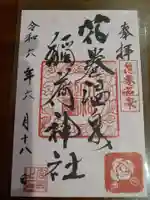 奉拝
花巻温泉
稲荷神社
令和六年六月十八日